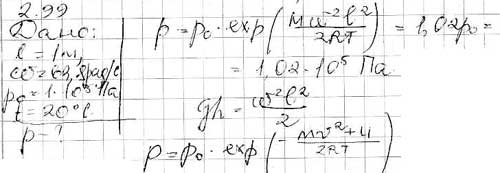 2.99
Дано:
l = 1 м,
ω = 62,8 рад/с
p₀ = 1·10⁵ Па
t = 20°C
p - ?
p = p₀ · exp(Mω²l²/2RT) = 1,02p₀ =
= 1,02 · 10⁵ Па
gh = ω²l²/2
p = p₀ · exp(- Mv²+4/2RT)